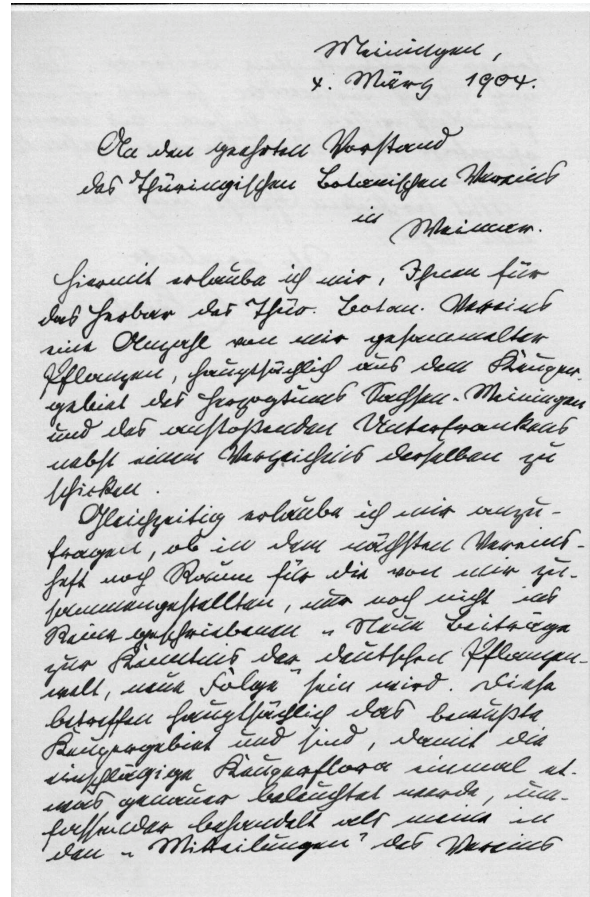 Meiningen,
4. März 1904.
An den geehrten Vorstand
des Thüringischen Botanischen Vereins
in
Weimar.
Hiermit erlaube ich mir, Ihnen für
das Herbar des Thür. Botan. Vereins
eine Anzahl von mir gesammelter
Pflanzen, hauptsächlich aus dem Keuper-
gebiet des Herzogtums Sachsen-Meiningen
und des anstoßenden Unterfrankens
nebst einem Verzeichnis derselben zu
schicken.
Gleichzeitig erlaube ich mir anzu-
fragen, ob in dem nächsten Vereins-
heft noch Raum für die von mir zu-
sammengestellten, nur noch nicht ins
Reine geschriebenen „Neue Beiträge
zur Kenntnis der deutschen Pflanzen-
welt, neue Folge" sein wird. Diese
betreffen hauptsächlich das
Keupergebiet und sind, damit die
einschlägige Keuperflora einmal et-
was genauer beleuchtet werde, um-
fassender behandelt als meine in
den „Mitteilungen" des Vereins